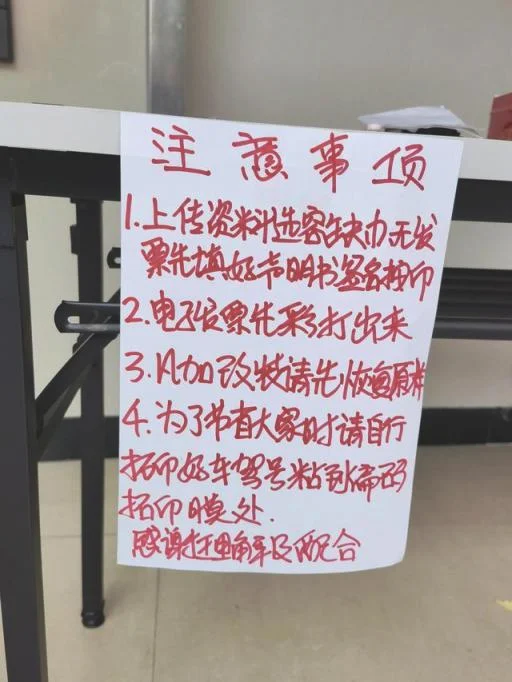 注意事项
1.上传资料选容缺办无发
票先填好节明书签名按印
2.电子发票先彩打出来
3.凡加改装请先恢复原样
4.为了节省大家时请自行
拓印好车驾号粘到编码
拓印膜处.
感谢打理解及配合